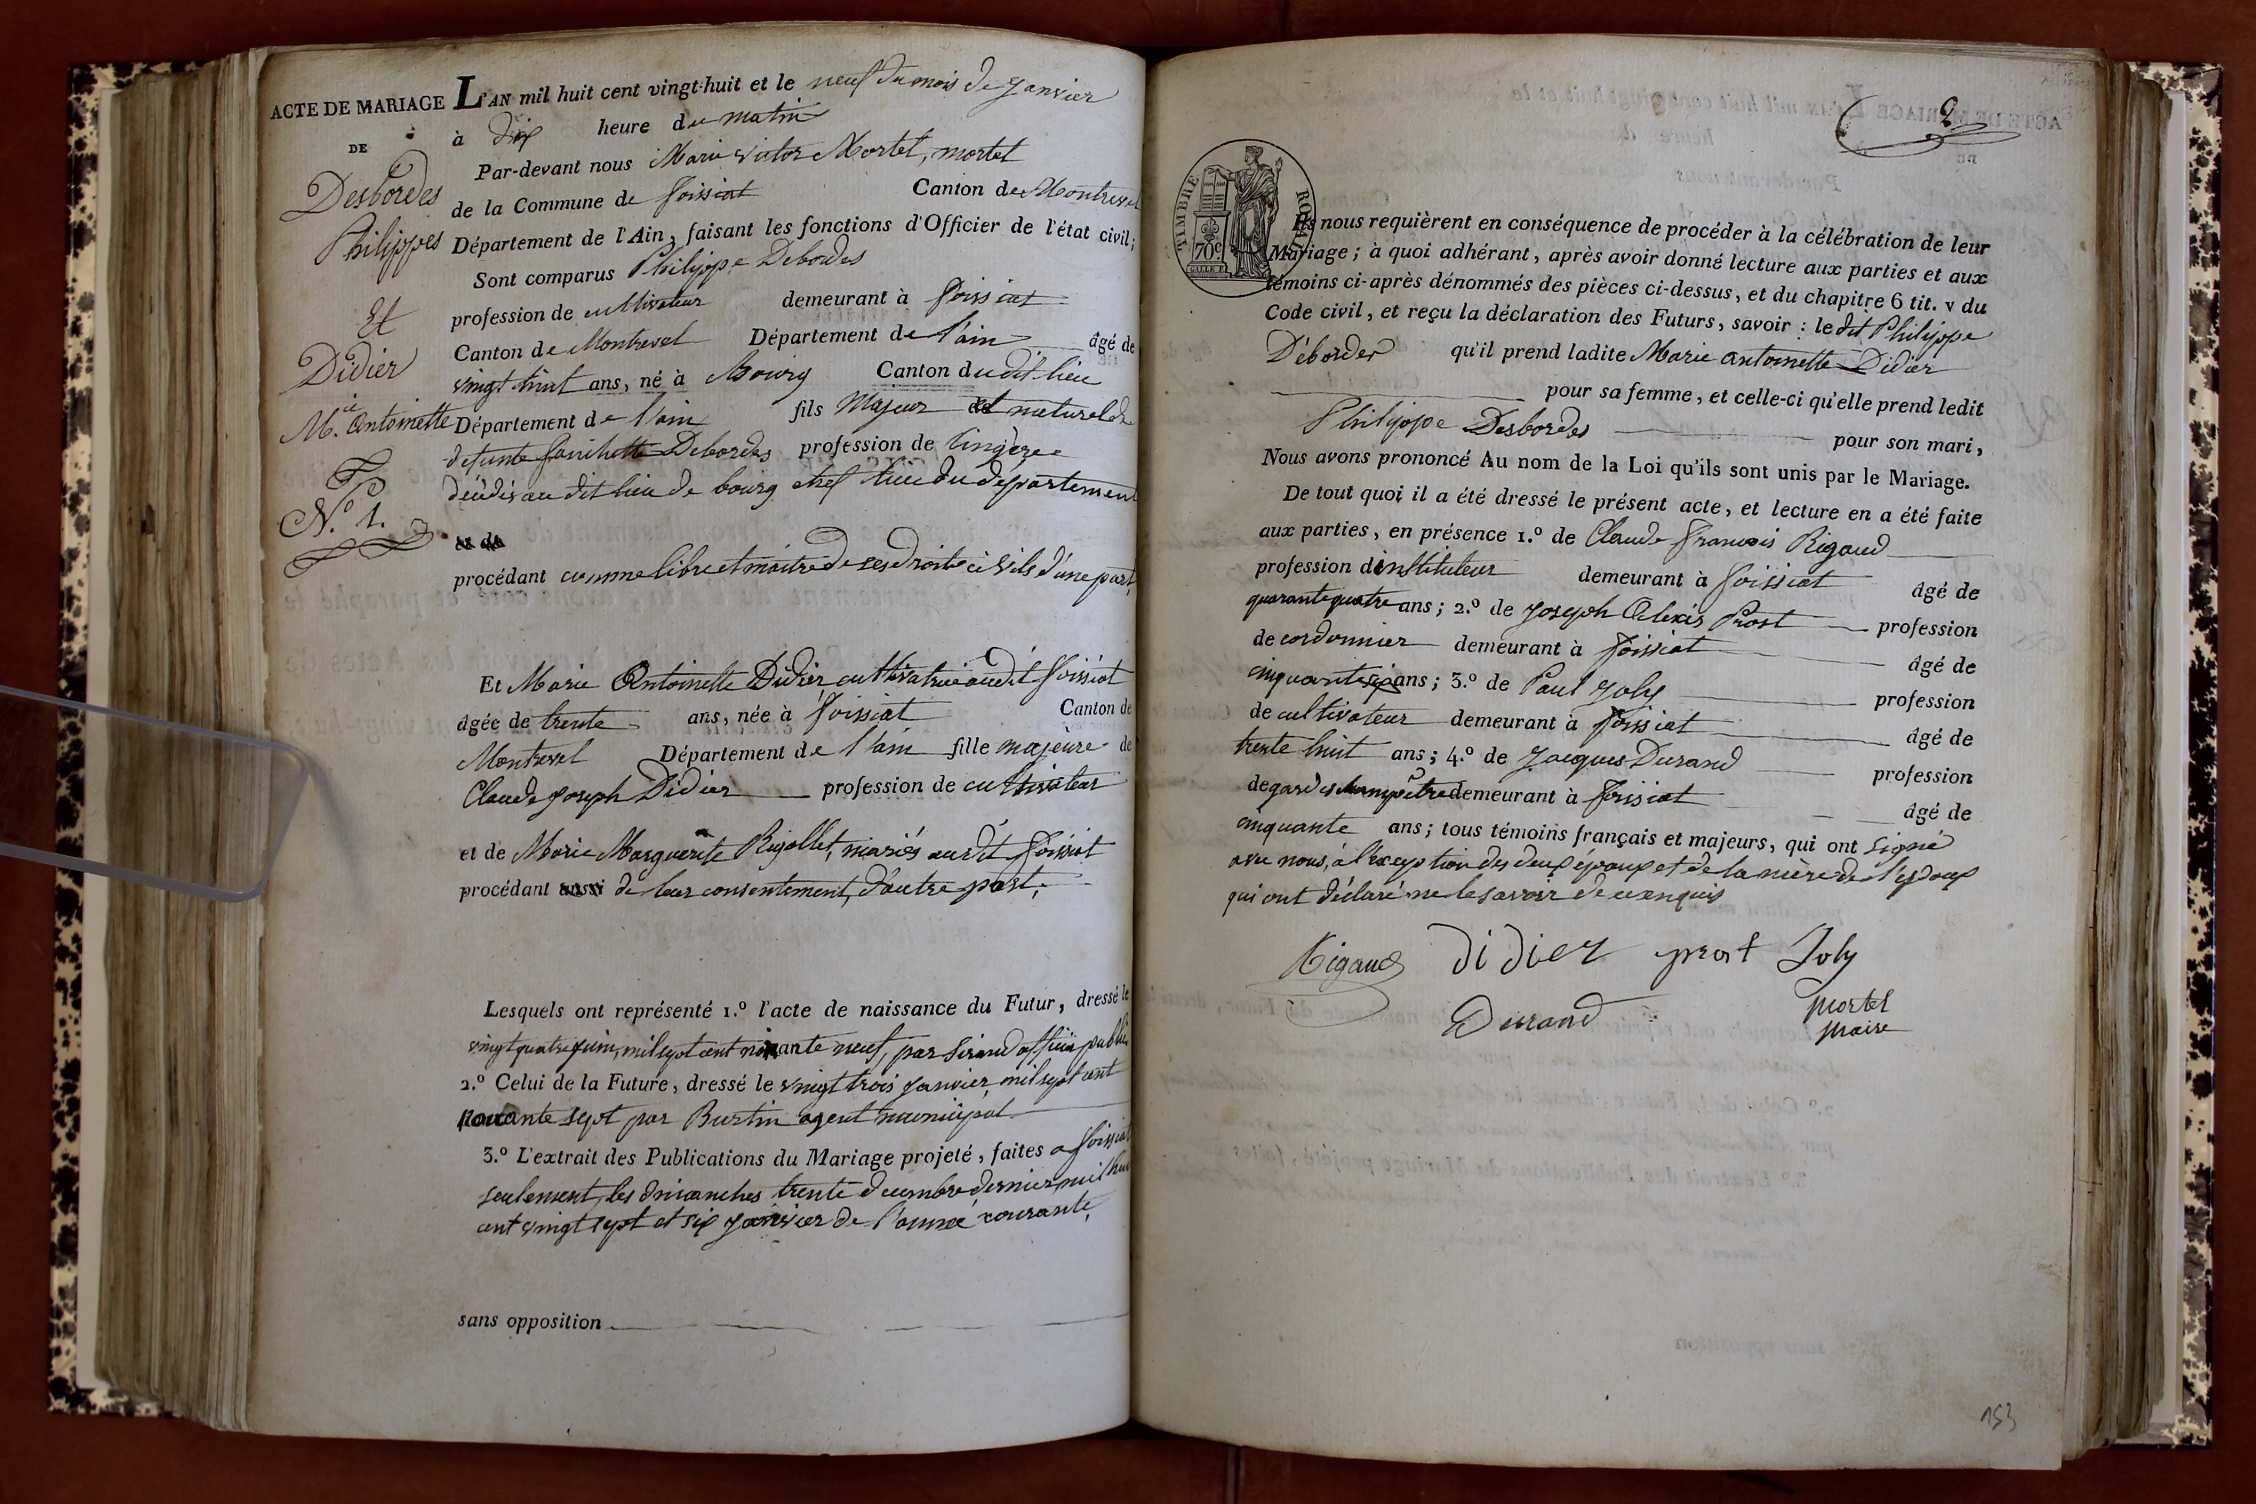 ACTE DE MARIAGE
DE
Desbordes
Philippes
Et
Didier
M.ie Antoinette
N.º 1.
L'AN mil huit cent vingt-huit et le neuf du mois de Janvier
à dix heure du matin
Par-devant nous Marie victor Mortel, mortel
de la Commune de foissiat Canton de Montrevel
Département de l'Ain, faisant les fonctions d'Officier de l'état civil;
Sont comparus Philippe Debordes
profession de cultivateur demeurant à foissiat
Canton de Montrevel Département de l'ain âgé de
vingt huit ans, né à Bourg Canton dudit lieu
Département de l'ain fils Majeur et naturel de
defunte Debordes profession de lingère
décédés au dit lieu de bourg chef lieu du département
et de
procédant comme libre et maitre de ses droits civils d'une part,
Et Marie Antoinette Didier, cultivatrice audit foissiat
âgée de trente ans, née à foissiat Canton de
Montrevel Département de l'ain fille majeure de
Claude joseph Didier profession de cultivateur
et de Marie Marguerite Rigollet, mariés audit foissiat
procédant aussi de leur consentement, d'autre part.
Lesquels ont représenté 1.º l'acte de naissance du Futur, dressé le
vingt quatre juin, mil sept cent nonante neuf, par officier public
2.º Celui de la Future, dressé le vingt trois janvier mil sept cent
nonante sept par Burtin agent municipal
3.º L'extrait des Publications du Mariage projeté, faites a foissiat
seulement, les dimanches trente decembre dernier mil huit
cent vingt sept et six janvier de l'année courante,
sans opposition
2
TIMBRE ROYAL
70c
Ils nous requièrent en conséquence de procéder à la célébration de leur
Mariage; à quoi adhérant, après avoir donné lecture aux parties et aux
témoins ci-après dénommés des pièces ci-dessus, et du chapitre 6 tit. v du
Code civil, et reçu la déclaration des Futurs, savoir: le dit Philippe
Débordes qu'il prend ladite Marie antoinette Didier
pour sa femme, et celle-ci qu'elle prend ledit
Philippe Desbordes pour son mari,
Nous avons prononcé Au nom de la Loi qu'ils sont unis par le Mariage.
De tout quoi il a été dressé le présent acte, et lecture en a été faite
aux parties, en présence 1.º de Claude francois Rigaud
profession dinstituteur demeurant à foissiat âgé de
quarante quatre ans; 2.º de joseph Alexis Prost profession
de cordonnier demeurant à foissiat âgé de
cinquante six ans; 3.º de Paul joly profession
de cultivateur demeurant à foissiat âgé de
trente huit ans; 4.º de jacques Durand profession
de garde champêtre demeurant à foissiat âgé de
cinquante ans; tous témoins français et majeurs, qui ont signé
avec nous, à l'exception des deux époux et de la mère de l'epouse
qui ont déclaré ne le savoir de ce enquis
Rigaud didier prost Joly
Durand mortel
maire
153